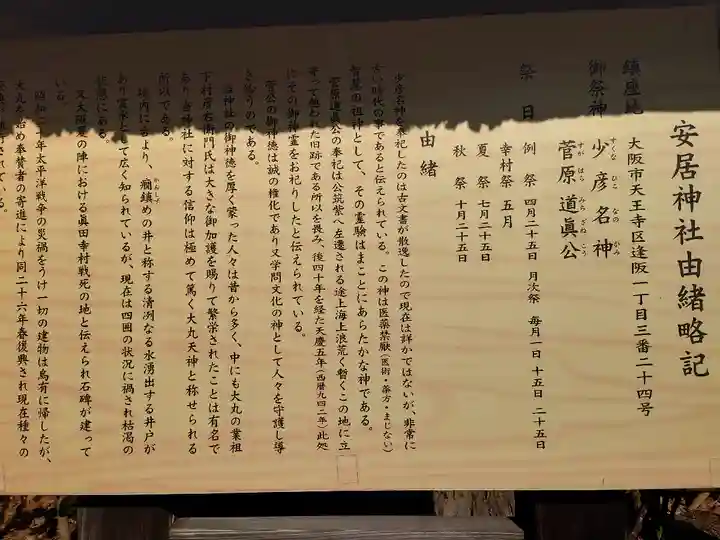 安居神社由緒略記
鎮座地　大阪市天王寺区逢阪一丁目三番二十四号
御祭神　少彦名神
すくな　ひこ　なの　かみ
菅原道眞公
すが　はら　みち　ざね　こう
祭日　例祭　四月二十五日　月次祭　毎月一日　十五日　二十五日
幸村祭　五月
夏祭　七月二十五日
秋祭　十月二十五日
由緒
少彦名神を奉祀したのは古文書が散逸したので現在は詳かではないが、非常に
古い時代の事であると伝えられている。この神は医薬禁厭（医術・薬方・まじない）
智慧の祖神として、その霊験はまことにあらたかな神である。
菅原道眞公の奉祀は公筑紫へ左遷される途上海上浪荒く暫くこの地に立
寄って憩われた旧跡である所以を畏み、後四十年を経た天慶五年（西暦九四二年）此処
にその御神霊をお祀りしたと伝えられている。
菅公の御神徳は誠の権化であり又学問文化の神として人々を守護し導
き給うのである。
当神社の御神徳を厚く蒙った人々は昔から多く、中にも大丸の業祖
下村彦右衛門氏は大きな御加護を賜りて繁栄されたことは有名で
あり当神社に対する信仰は極めて篤く大丸天神と称せられる
所以である。
境内に古より、癇鎮めの井と称する清冽なる水湧出する井戸が
かんしづ
あり霊水として広く知られているが、現在は四囲の状況に禍され枯渇の
状態にある。
又大阪夏の陣における眞田幸村戦死の地と伝えられ石碑が建って
いる。
昭和二十年太平洋戦争の災禍をうけ一切の建物は烏有に帰したが、
大丸を始め奉賛者の寄進により同二十六年春復興され現在種々の
されている。